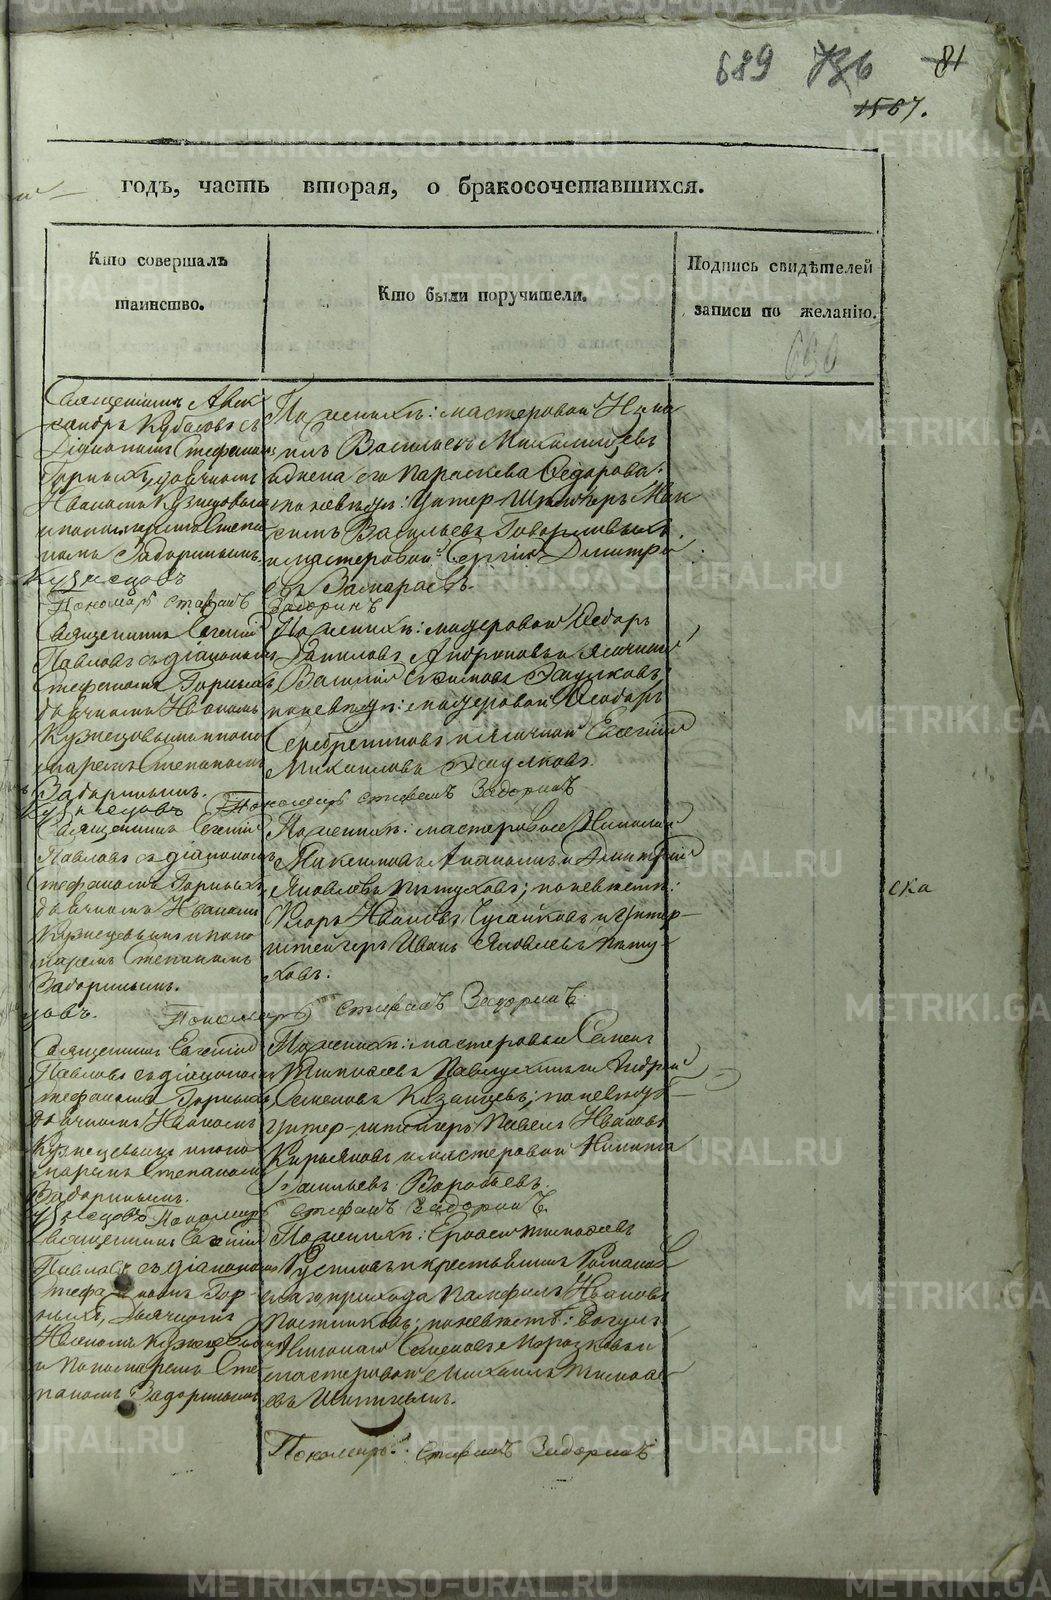 689 736 81
1567.
годъ, часть вторая, о бракосочетавшихся.
Кто совершалъ таинство.
Кто были поручители.
Подпись свидѣтелей записи по желанію.
690
Священникъ Алек
сандръ Кубасовъ съ
Діакономъ Стефаномъ
Горныхъ, дьячкомъ
Иваномъ Кузнецовымъ
и пономаремъ Степа
номъ Задоринымъ.
Кузнецовъ
По женихѣ: мастеровой
Васильевъ
и жена его Параскева Федорова;
по невѣстѣ: Унтер-Штейгеръ Мак
симъ Васильевъ Говорливыхъ
и мастеровой Сергій Дмитрі
евъ Замараевъ.
Пономарь Стефанъ Задоринъ
Священникъ Евгеній
Павловъ съ діакономъ
Стефаномъ Горныхъ
дьячкомъ Иваномъ
Кузнецовымъ и поно
маремъ Степаномъ
Задоринымъ.
Кузнецовъ
По женихѣ: мастеровой Ѳедоръ
Даниловъ
Василій
по невѣстѣ: мастеровой Ѳеодоръ
Серебренниковъ и Евгеній
Михаиловъ
Пономарь Стефанъ Задоринъ
Священникъ Евгеній
Павловъ съ діакономъ
Стефаномъ Горныхъ
дьячкомъ Иваномъ
Кузнецовымъ и поно
маремъ Степаномъ
Задоринымъ.
цовъ.
По женихѣ: мастеровые Николай
Максимовъ и Дмитрій
Яковлевъ Пѣтуховъ; по невѣстѣ:
Егоръ Ивановъ Чугайновъ и Унтер-
штейгеръ Иванъ Яковлевъ Пѣту-
ховъ.
Пономарь Стефанъ Задоринъ
ска
Священникъ Евгеній
Павловъ съ діакономъ
Стефаномъ Горныхъ
дьячкомъ Иваномъ
Кузнецовымъ и поно
маремъ Степаномъ
Задоринымъ.
Кузнецовъ
По женихѣ: мастеровые Семенъ
и Андрей
Семеновъ Казанцевъ; по невѣстѣ
Унтер-штейгеръ Павелъ Ивановъ
Кирьяновъ и мастеровой Никита
Васильевъ Воробьевъ.
Пономарь Стефанъ Задоринъ
Священникъ Евгеній
Павловъ съ діакономъ
Стефаномъ Гор-
ныхъ, Дьячкомъ
Иваномъ Кузнецовымъ
и Пономаремъ Сте
паномъ Задоринымъ
По женихѣ: Тимофеевъ
и крестьянинъ
прихода Памфилъ Ивановъ
Постниковъ; по невѣстѣ:
Николай Семеновъ Морозковъ и
мастеровой Михаилъ Тимофе
евъ
Пономарь Стефанъ Задоринъ
METRIKI.GASO-URAL.RU